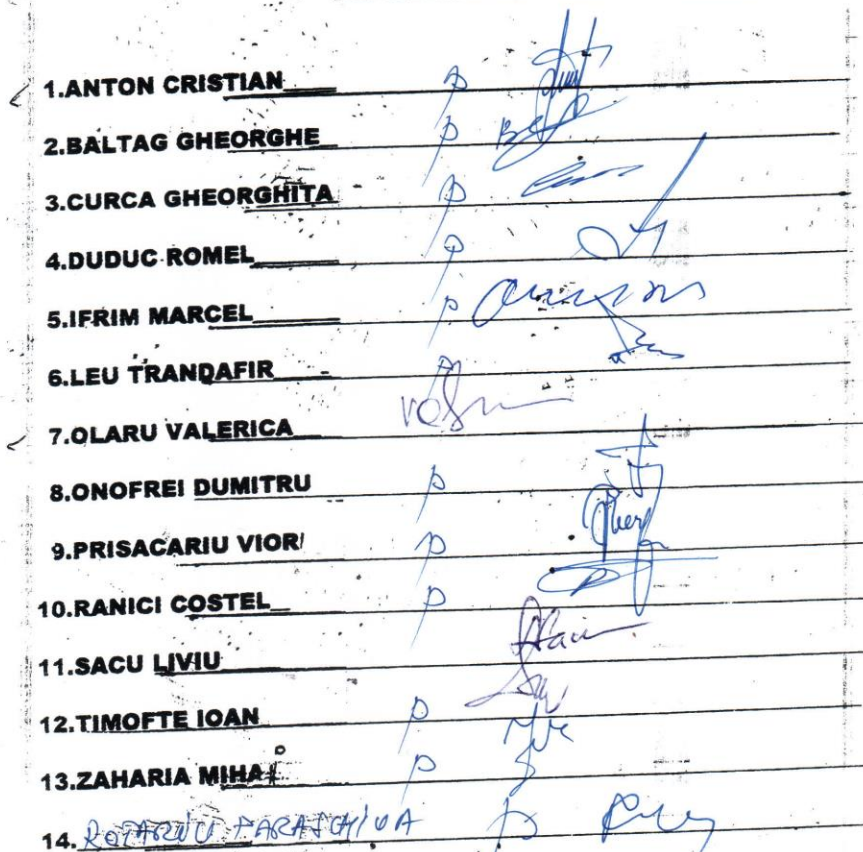 1.ANTON CRISTIAN p
2.BALTAG GHEORGHE p
3.CURCA GHEORGHITA p
4.DUDUC ROMEL p
5.IFRIM MARCEL p
6.LEU TRANDAFIR p
7.OLARU VALERICA
8.ONOFREI DUMITRU p
9.PRISACARIU VIOR p
10.RANICI COSTEL p
11.SACU LIVIU
12.TIMOFTE IOAN p
13.ZAHARIA MIHAI p
14. ROTARIU PARASCHIVA p